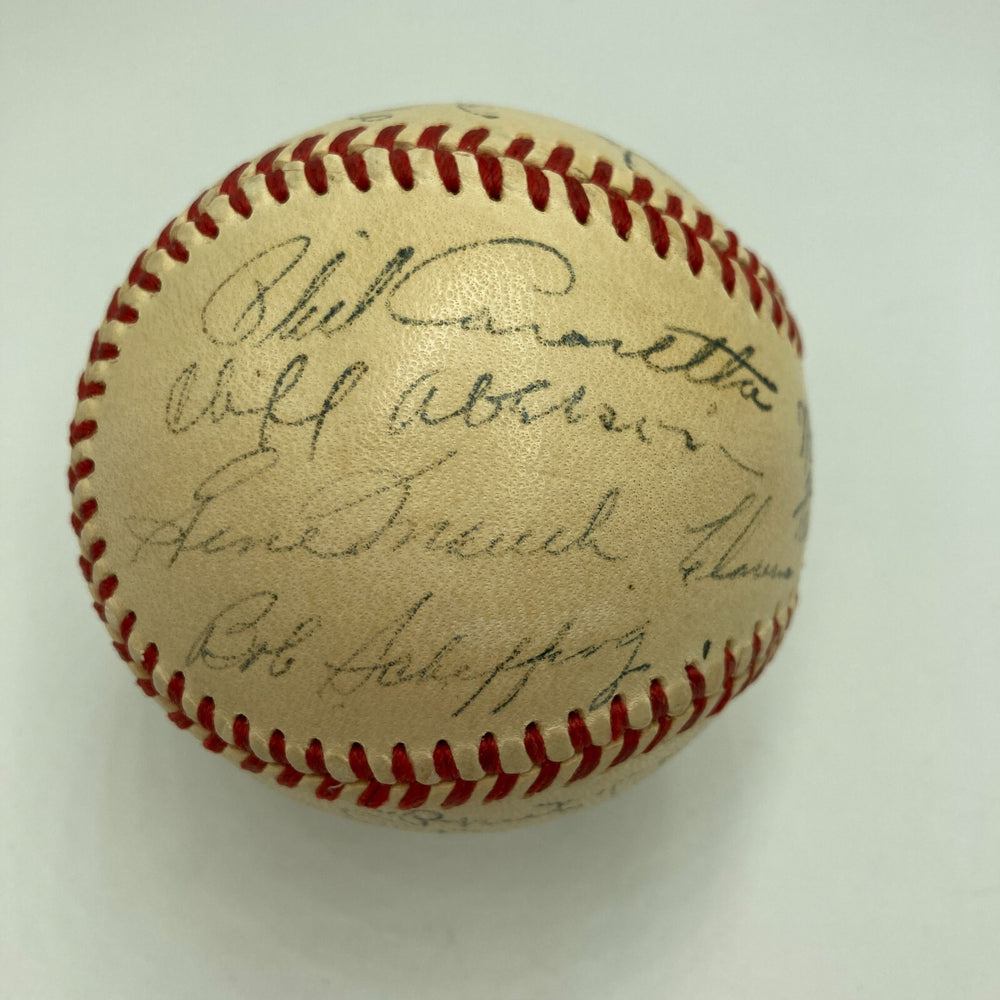 Phil Cavarretta
Cliff Aberson
Gene Mauch
Bob Scheffing